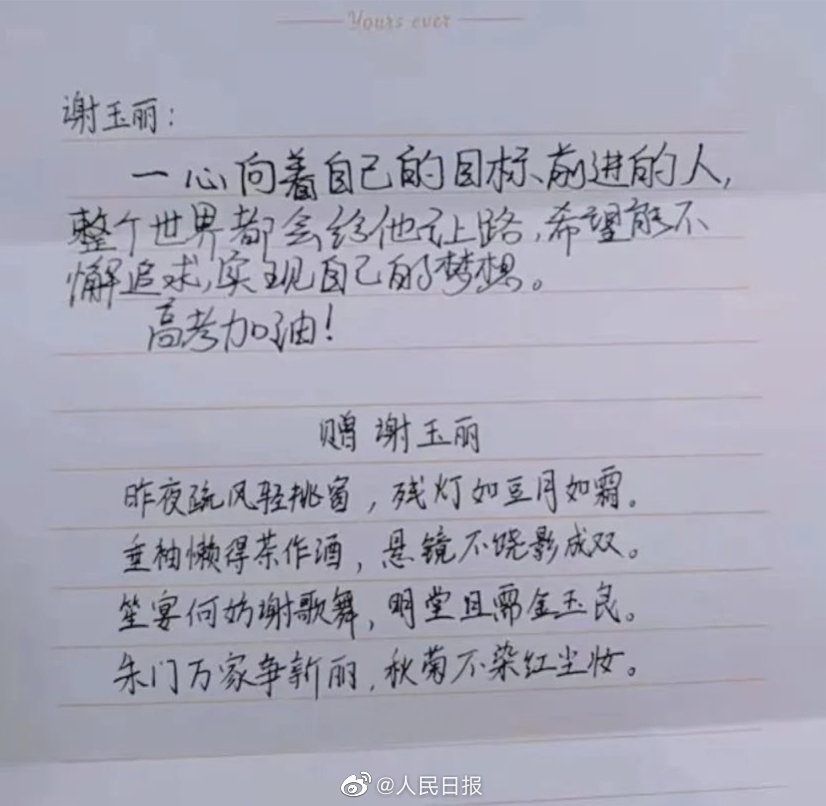 Yours ever
谢玉丽:
一心向着自己的目标前进的人,
整个世界都会给他让路,希望能不
懈追求,实现自己的梦想。
高考加油!
赠谢玉丽
昨夜疏风轻挑窗,残灯如豆月如霜。
垂袖懒得茶作酒,悬镜不饶影成双。
笙宴何妨谢歌舞,明堂且需金玉良。
朱门万家争新丽,秋菊不染红尘妆。
@人民日报